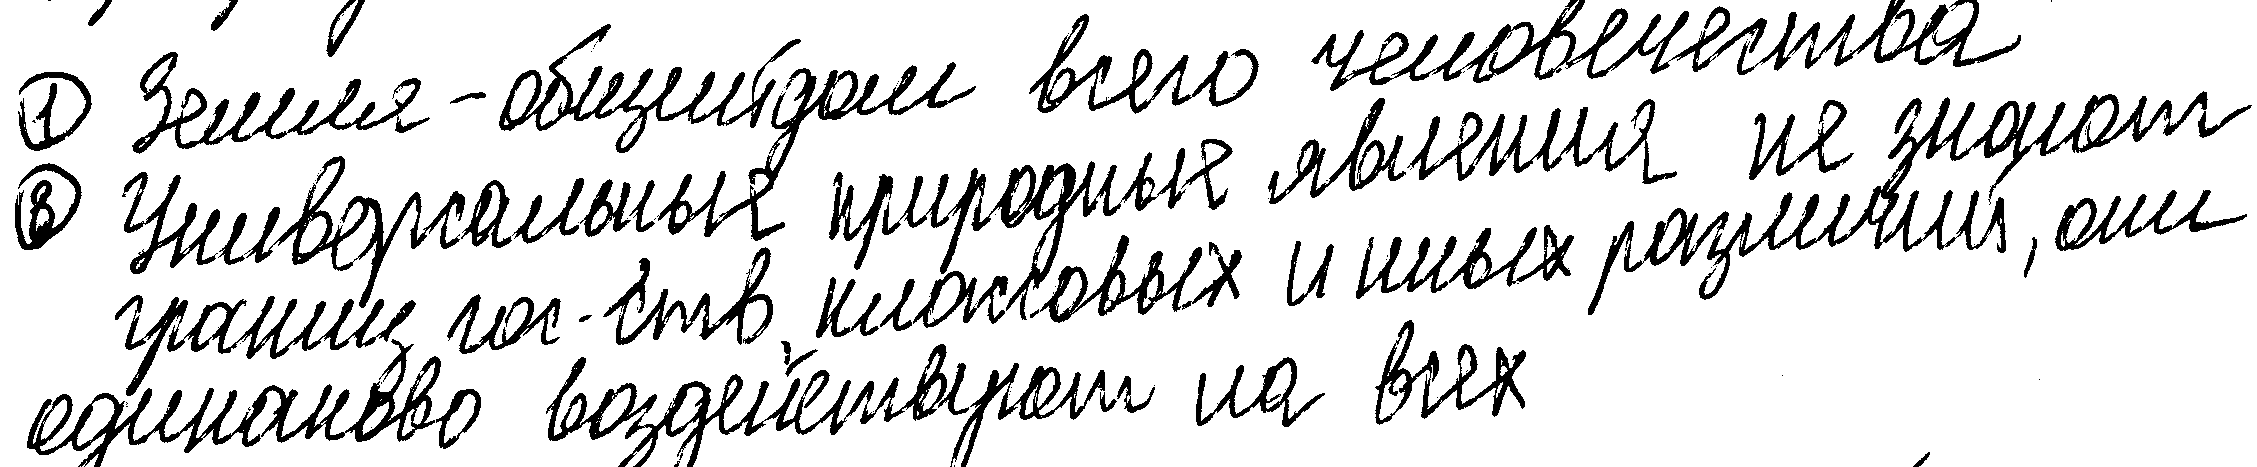 ① Земля - общий дом всего человечества
② Универсальные природные явления не знают
границ гос-ств, классовых и иных различий, они
одинаково воздействуют на всех